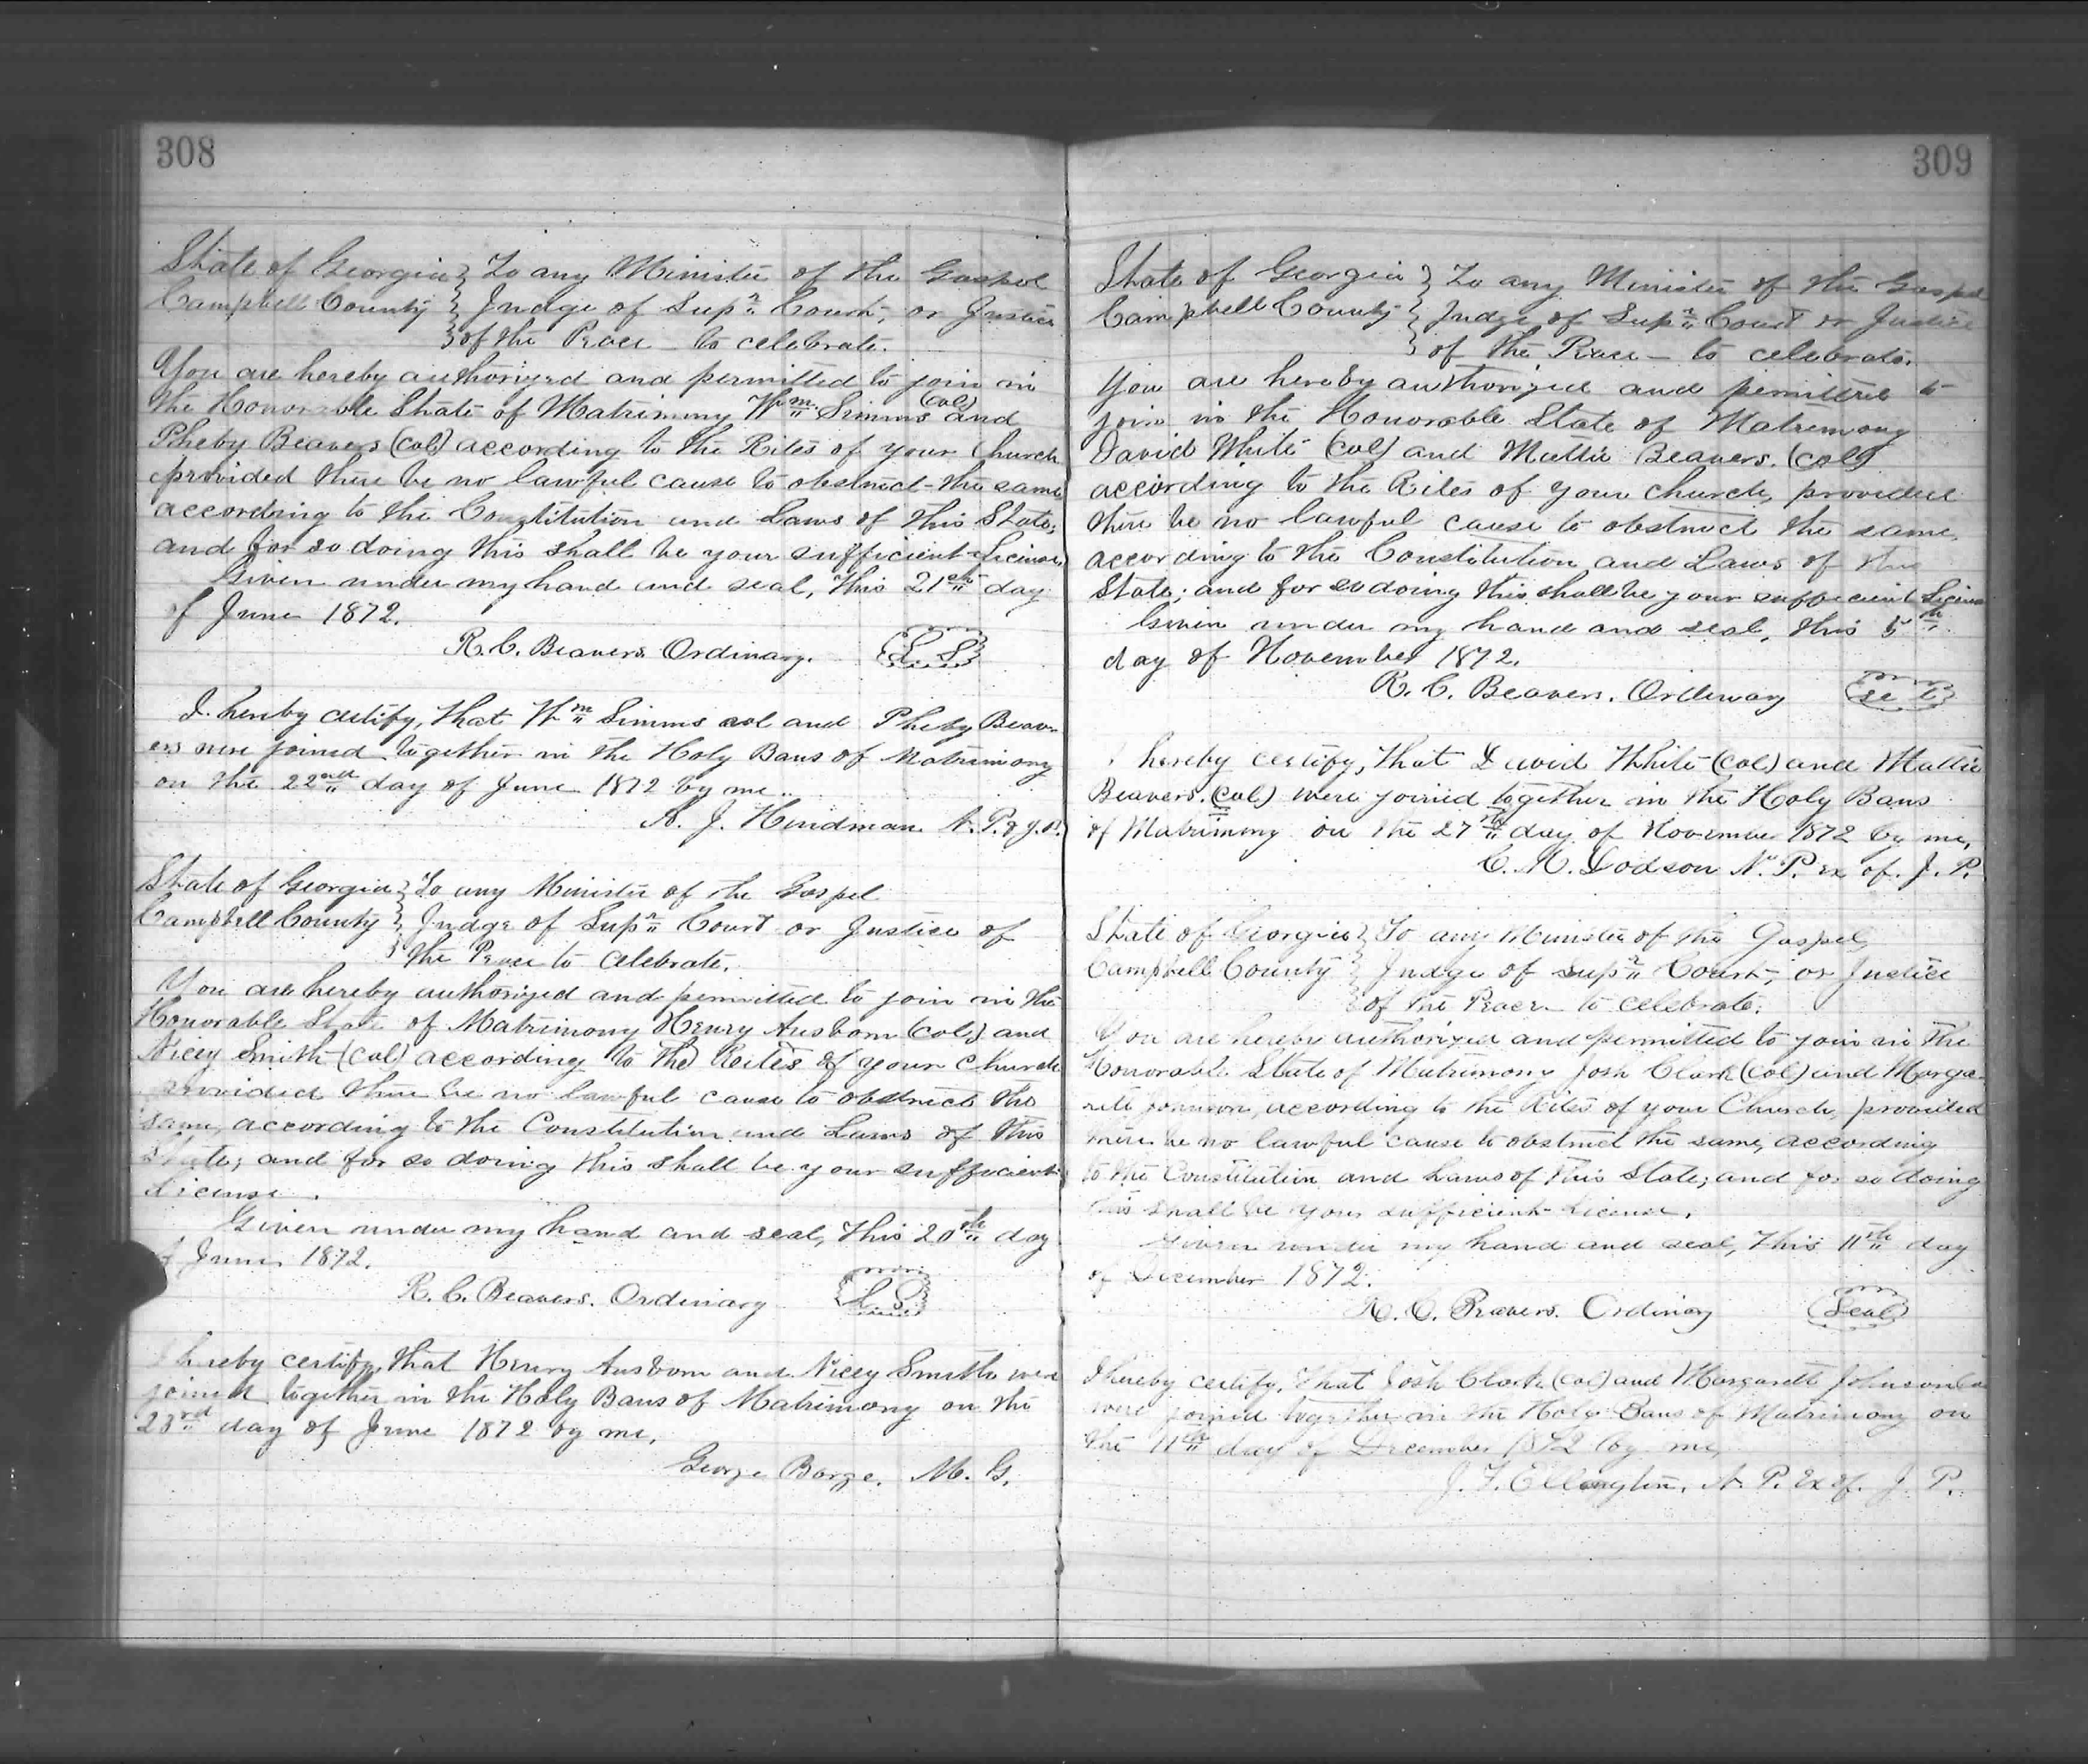 308
State of Georgia } To any Minister of the Gospel
Campbell County } Judge of Supr Court, or Justice
} of the Peace to celebrate.
You are hereby authorized and permitted to join in
the Honorable State of Matrimony Wm Simms (col) and
Pheby Beavers (col) according to the Rites of your Church
provided there be no lawful cause to obstruct the same
according to the Constitution and Laws of this State;
and for so doing this shall be your sufficient License.
Given under my hand and seal, this 21st day
of June 1872.
R. C. Beavers Ordinary. L. S.
I hereby certify, that Wm Simms col and Pheby Beav-
ers were joined together in the Holy Bans of Matrimony
on the 22nd day of June 1872 by me.
A. J. Hindman N. P. & J. P.
State of Georgia } To any Minister of the Gospel
Campbell County } Judge of Supr Court or Justice of
} the Peace to celebrate.
You are hereby authorized and permitted to join in the
Honorable State of Matrimony Henry Ausborn (col) and
Nicey Smith (col) according to the Rites of your Church
provided there be no lawful cause to obstruct the
same, according to the Constitution and Laws of this
State; and for so doing this shall be your sufficient
License.
Given under my hand and seal, this 20th day
of June 1872.
R. C. Beavers. Ordinary L. S.
I hereby certify, that Henry Ausborn and Nicey Smith were
joined together in the Holy Bans of Matrimony on the
23rd day of June 1872 by me,
George Barge. M. G.
309
State of Georgia } To any Minister of the Gospel
Campbell County } Judge of Supr Court or Justice
} of the Peace – to celebrate.
You are hereby authorized and permitted to
join in the Honorable State of Matrimony
David White (col) and Mattie Beavers. (col)
according to the Rites of your Church, provided
there be no lawful cause to obstruct the same,
according to the Constitution and Laws of this
State; and for so doing this shall be your sufficient License
Given under my hand and seal, this 5th
day of November 1872.
R. C. Beavers. Ordinary
I hereby certify, that David White (col) and Mattie
Beavers. (col) were joined together in the Holy Bans
of Matrimony on the 27th day of November 1872 by me,
C. M. Dodson N. P. Ex of. J. P.
State of Georgia } To any Minister of the Gospel
Campbell County } Judge of Supr Court, or Justice
} of the Peace to celebrate.
You are hereby authorized and permitted to join in the
Honorable State of Matrimony Josh Clark (col) and Marga-
rett Johnson, according to the Rites of your Church, provided
there be no lawful cause to obstruct the same, according
to the Constitution and Laws of this State; and for so doing
this shall be your sufficient License.
Given under my hand and seal, this 11th day
of December 1872.
R. C. Beavers. Ordinary Seal
I hereby certify, that Josh Clark (col) and Margarett Johnson
were joined together in the Holy Bans of Matrimony on
the 11th day of December 1872 by me,
J. F. Ellington, N. P. Ex of. J. P.